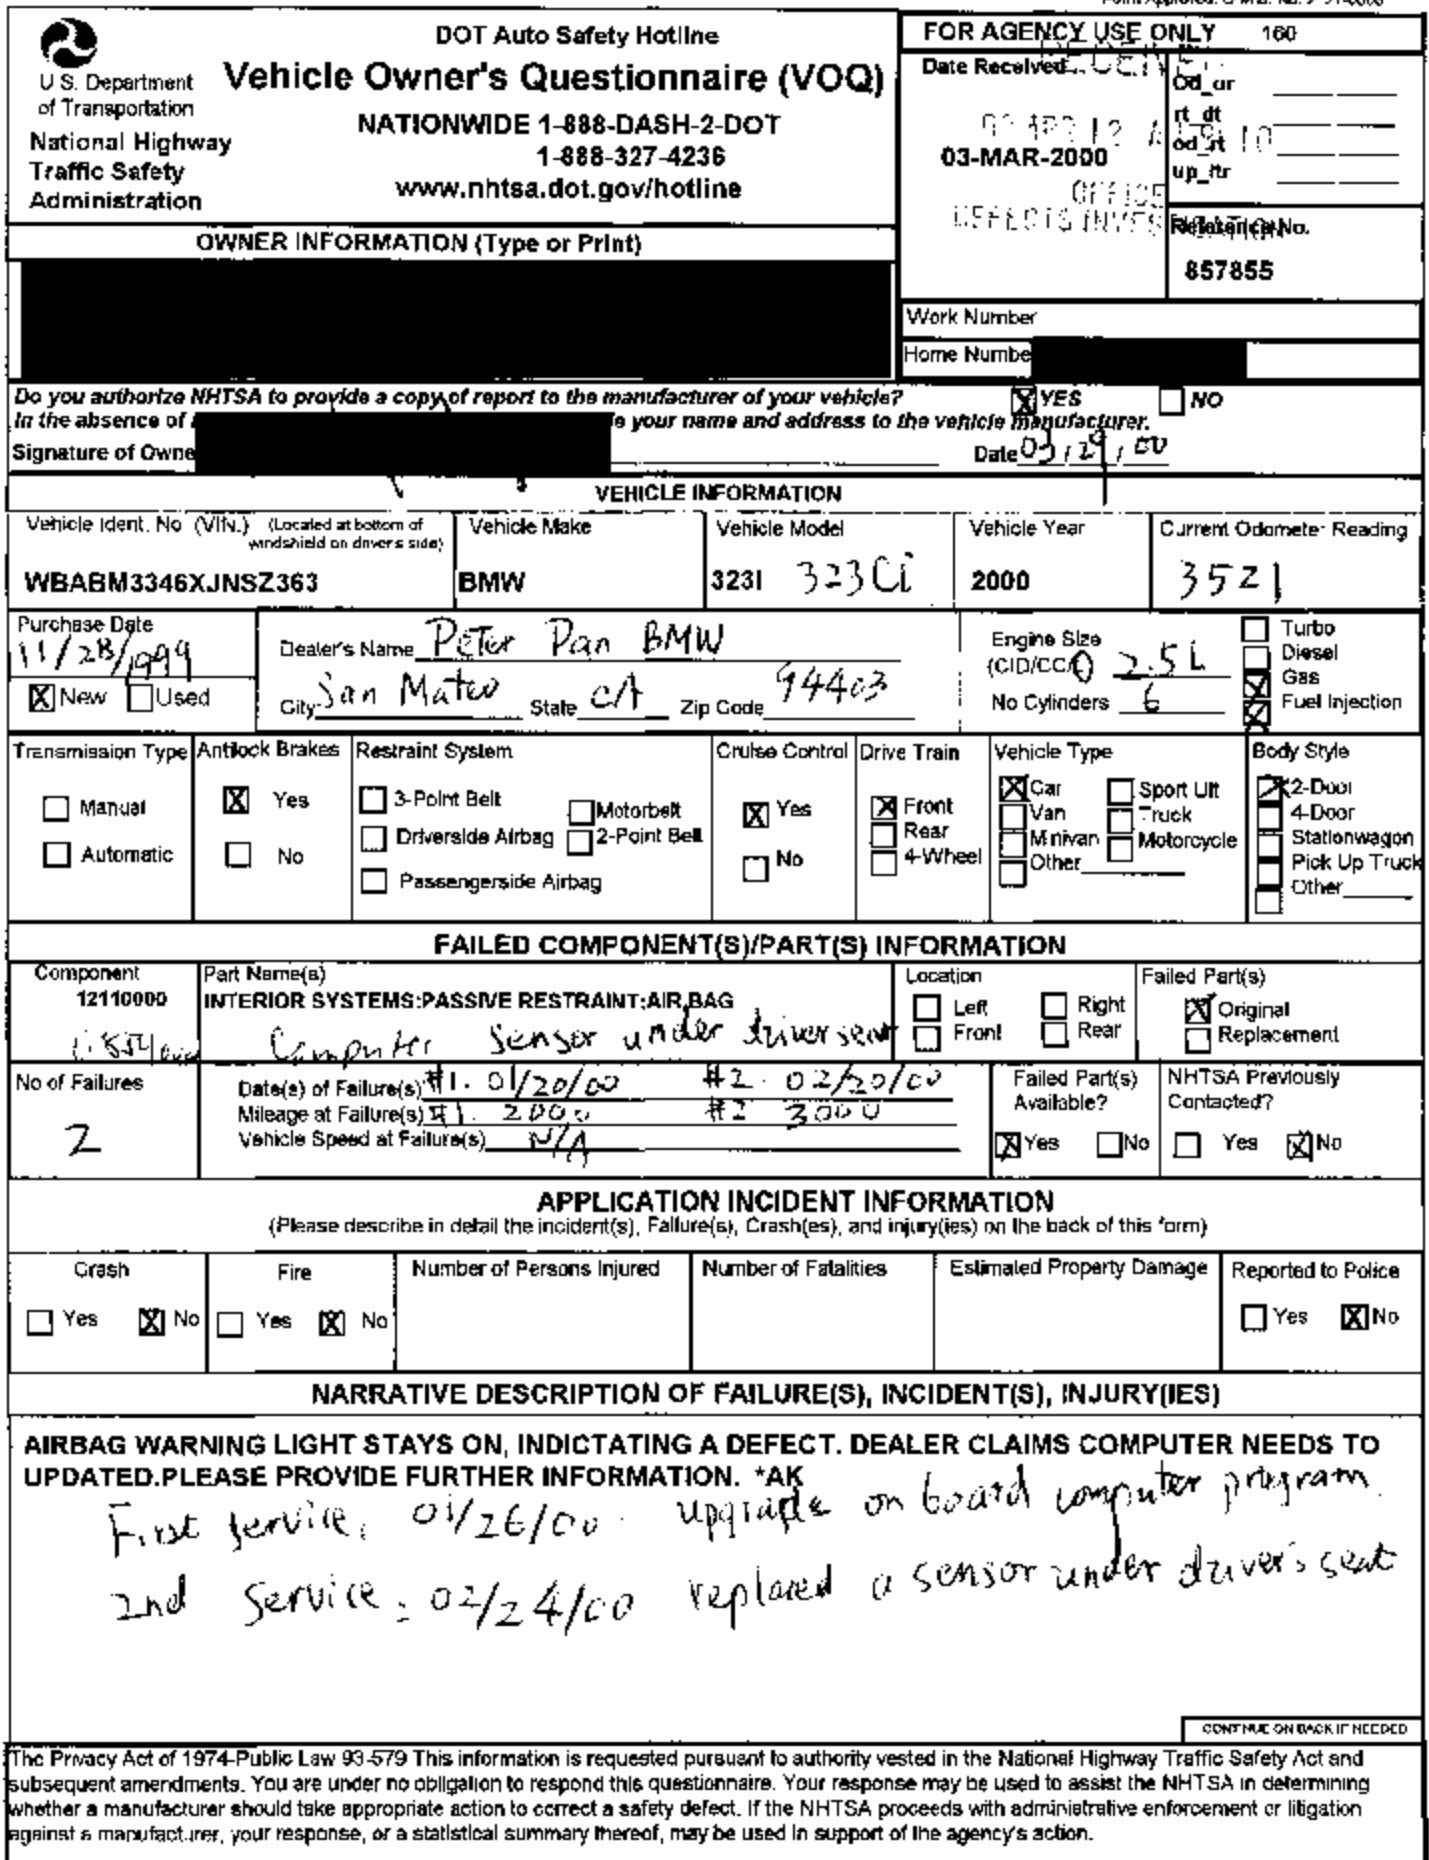 DOT Auto Safety Hotline
Vehicle Owner's Questionnaire (VOQ)
NATIONWIDE 1-888-DASH-2-DOT
1-888-327-4236
www.nhtsa.dot.gov/hotline
U S. Department
of Transportation
National Highway
Traffic Safety
Administration
FOR AGENCY USE ONLY 160
Date Received
03-MAR-2000
OFFICE
Od_or
rt_dt
od_rt
up_ltr
Reference No.
857855
OWNER INFORMATION (Type or Print)
Work Number
Home Numbe
Do you authorize NHTSA to provide a copy of report to the manufacturer of your vehicle? X YES NO
In the absence of your name and address to the vehicle manufacturer.
Signature of Owne Date 03/29/00
VEHICLE INFORMATION
Vehicle Ident. No (VIN.) (Located at bottom of windshield on driver's side)
WBABM3346XJNSZ363
Vehicle Make
BMW
Vehicle Model
323I 323Ci
Vehicle Year
2000
Current Odometer Reading
3521
Purchase Date
11/28/1999
X New Used
Dealer's Name Peter Pan BMW
City San Mateo State CA Zip Code 94403
Engine Size
(CID/CC/L) 2.5L
No Cylinders 6
Turbo
Diesel
X Gas
X Fuel Injection
Transmission Type
Manual
Automatic
Antilock Brakes
X Yes
No
Restraint System
3-Point Belt
Driverside Airbag
Passengerside Airbag
Motorbelt
2-Point Belt
Cruise Control
X Yes
No
Drive Train
X Front
Rear
4-Wheel
Vehicle Type
X Car
Van
Minivan
Other
Sport Ult
Truck
Motorcycle
Body Style
X 2-Door
4-Door
Stationwagon
Pick Up Truck
Other
FAILED COMPONENT(S)/PART(S) INFORMATION
Component
12110000
Part Name(s)
INTERIOR SYSTEMS:PASSIVE RESTRAINT:AIR BAG
Computer Sensor under driver seat
Location
Left
Front
Right
Rear
Failed Part(s)
X Original
Replacement
No of Failures
2
Date(s) of Failure(s) #1. 01/20/00 #2. 02/20/00
Mileage at Failure(s) #1. 2000 #2 3000
Vehicle Speed at Failure(s) N/A
Failed Part(s)
Available?
X Yes No
NHTSA Previously
Contacted?
Yes X No
APPLICATION INCIDENT INFORMATION
(Please describe in detail the incident(s), Failure(s), Crash(es), and injury(ies) on the back of this form)
Crash
Yes X No
Fire
Yes X No
Number of Persons Injured
Number of Fatalities
Estimated Property Damage
Reported to Police
Yes X No
NARRATIVE DESCRIPTION OF FAILURE(S), INCIDENT(S), INJURY(IES)
AIRBAG WARNING LIGHT STAYS ON, INDICTATING A DEFECT. DEALER CLAIMS COMPUTER NEEDS TO
UPDATED.PLEASE PROVIDE FURTHER INFORMATION. *AK
First service, 01/26/00. upgrade on board computer program.
2nd Service: 02/24/00 replaced a sensor under driver's seat
CONTINUE ON BACK IF NEEDED
The Privacy Act of 1974-Public Law 93-579 This information is requested pursuant to authority vested in the National Highway Traffic Safety Act and
subsequent amendments. You are under no obligation to respond this questionnaire. Your response may be used to assist the NHTSA in determining
whether a manufacturer should take appropriate action to correct a safety defect. If the NHTSA proceeds with administrative enforcement or litigation
against a manufacturer, your response, or a statistical summary thereof, may be used in support of the agency's action.